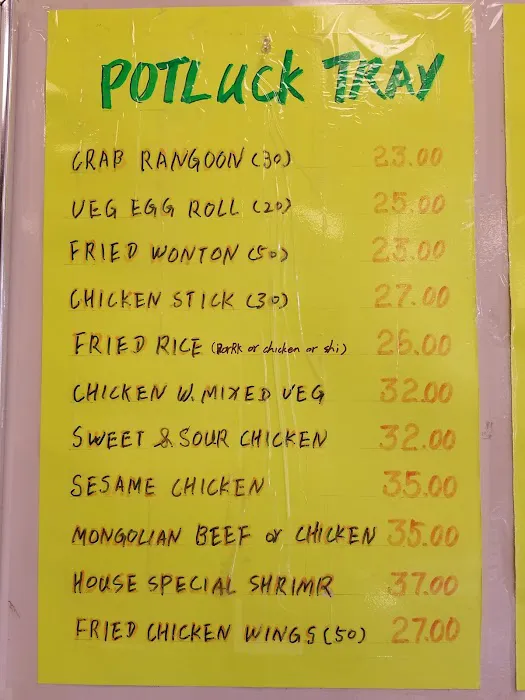 POTLUCK TRAY
CRAB RANGOON (30) 23.00
VEG EGG ROLL (20) 25.00
FRIED WONTON (50) 23.00
CHICKEN STICK (30) 27.00
FRIED RICE (PorRk or chicken or shi) 26.00
CHICKEN W. MIXED VEG 32.00
SWEET & SOUR CHICKEN 32.00
SESAME CHICKEN 35.00
MONGOLIAN BEEF or CHICKEN 35.00
HOUSE SPECIAL SHRIMR 37.00
FRIED CHICKEN WINGS (50) 27.00